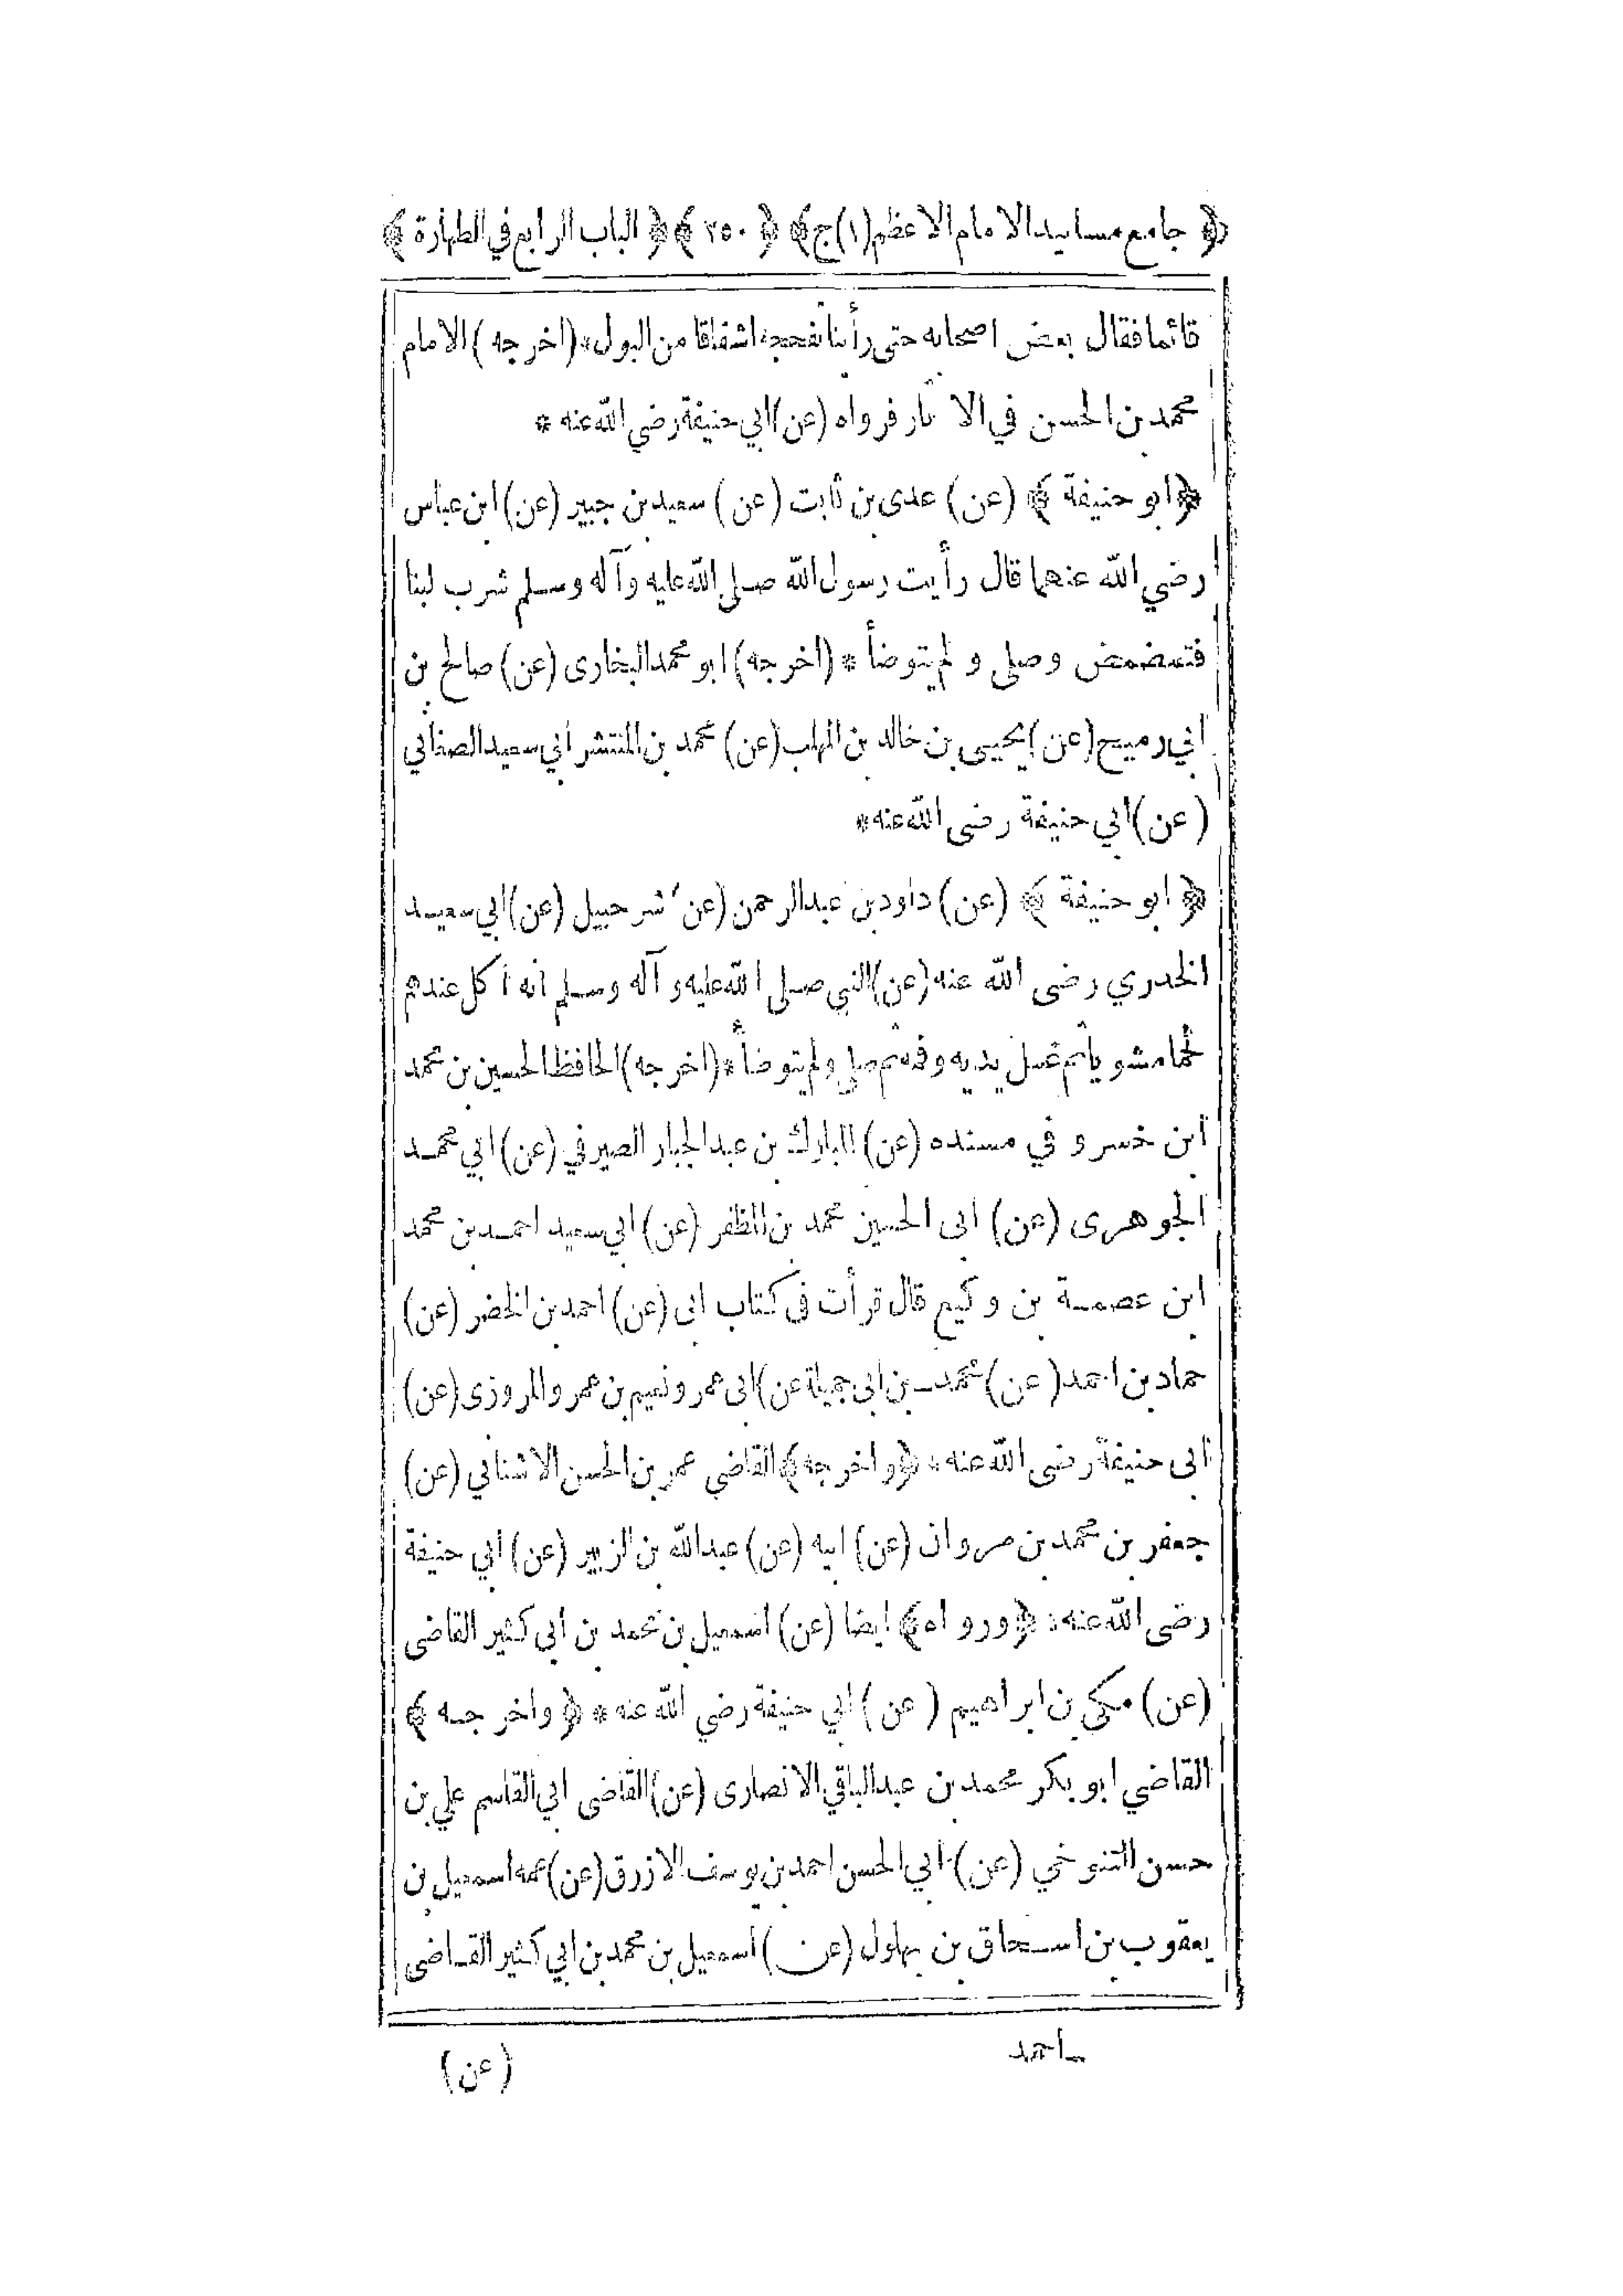 ﴿ جامع مسانيد الامام الاعظم (١) ج ﴾ ﴿ ٢٥٠ ﴾ ﴿ الباب الرابع في الطهارة ﴾
قائما فقال بعض اصحابه حتى رأينا تفحجه اشفاقا من البول * (اخرجه) الامام
محمد بن الحسن في الآثار فرواه (عن) ابي حنيفة رضي الله عنه *
﴿ ابو حنيفة ﴾ (عن) عدى بن ثابت (عن) سعيد بن جبير (عن) ابن عباس
رضي الله عنهما قال رأيت رسول الله صلى الله عليه وآله وسلم شرب لبنا
فتمضمض وصلى ولم يتوضأ * (اخرجه) ابو محمد البخارى (عن) صالح بن
ابي رميح (عن) يحيى بن خالد بن المهلب (عن) محمد بن المنتشر ابي سعيد الصغاني
(عن) ابي حنيفة رضى الله عنه *
﴿ ابو حنيفة ﴾ (عن) داود بن عبد الرحمن (عن) شرحبيل (عن) ابي سعيد
الخدري رضى الله عنه (عن) النبي صلى الله عليه وآله وسلم انه اكل عندهم
لحما مشويا ثم غسل يديه وفمه ثم صلى ولم يتوضأ * (اخرجه) الحافظ الحسين بن محمد
ابن خسرو في مسنده (عن) المبارك بن عبد الجبار الصيرفي (عن) ابي محمد
الجوهرى (عن) ابى الحسين محمد بن المظفر (عن) ابي سعيد احمد بن محمد
ابن عصمة بن وكيع قال قرأت فى كتاب ابى (عن) احمد بن الخضر (عن)
حماد بن احمد (عن) محمد بن ابى جميلة (عن) ابى عمرو نعيم بن عمرو المروزى (عن)
ابى حنيفة رضى الله عنه * ﴿ واخرجه ﴾ القاضي عمر بن الحسن الاشناني (عن)
جعفر بن محمد بن مروان (عن) ابيه (عن) عبد الله بن الزبير (عن) ابي حنيفة
رضى الله عنه * ﴿ ورواه ﴾ ايضا (عن) اسمعيل بن محمد بن ابى كثير القاضى
(عن) مكي بن ابراهيم (عن) ابي حنيفة رضي الله عنه * ﴿ واخرجه ﴾
القاضي ابو بكر محمد بن عبد الباقي الانصارى (عن) القاضى ابي القاسم علي بن
حسن التنوخي (عن) ابي الحسن احمد بن يوسف الازرق (عن) عمه اسمعيل بن
يعقوب بن اسحاق بن بهلول (عن) اسمعيل بن محمد بن ابي كثير القاضى
احمد
(عن)